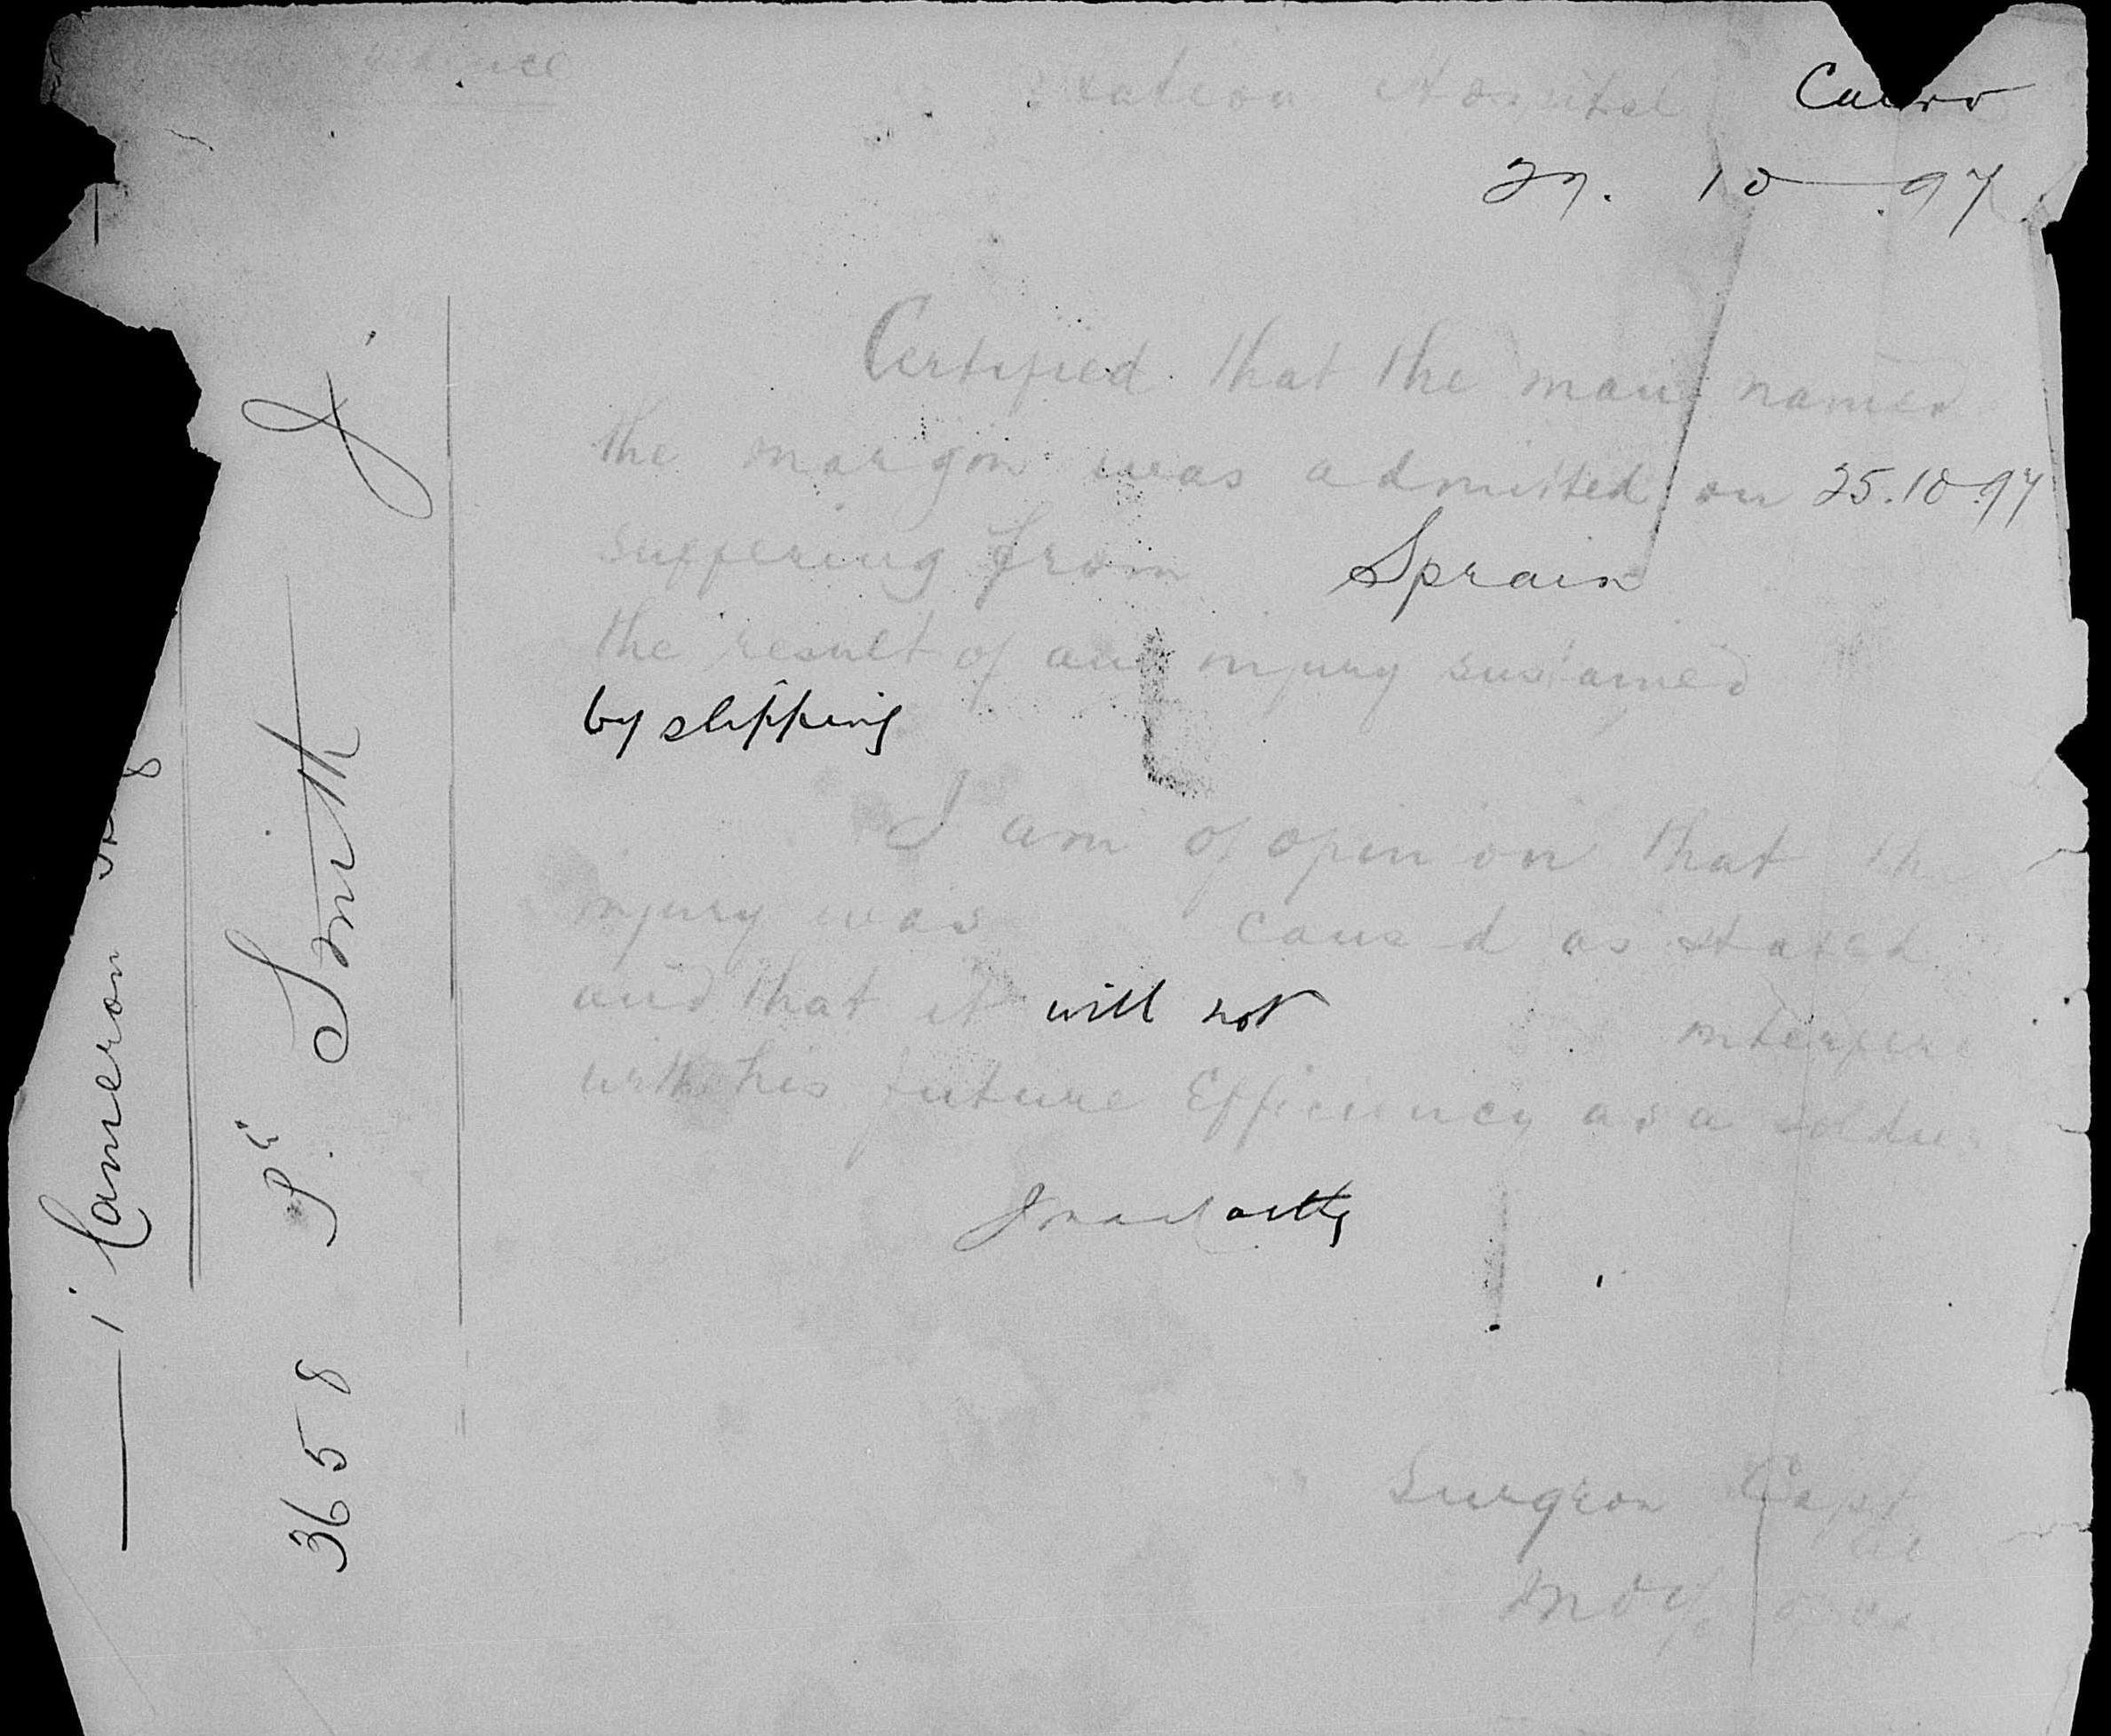 Station Hospital Cairo
27. 10 .97
Certified that the man named
the margin was admitted on 25.10.97
suffering from Sprain
the result of an injury sustained
by slipping
I am of opinion that the
injury was caused as stated
and that it will not interfere
with his future Efficiency as a soldier
Surgeon Capt
3658 Pte Smith J.
1 Cameron